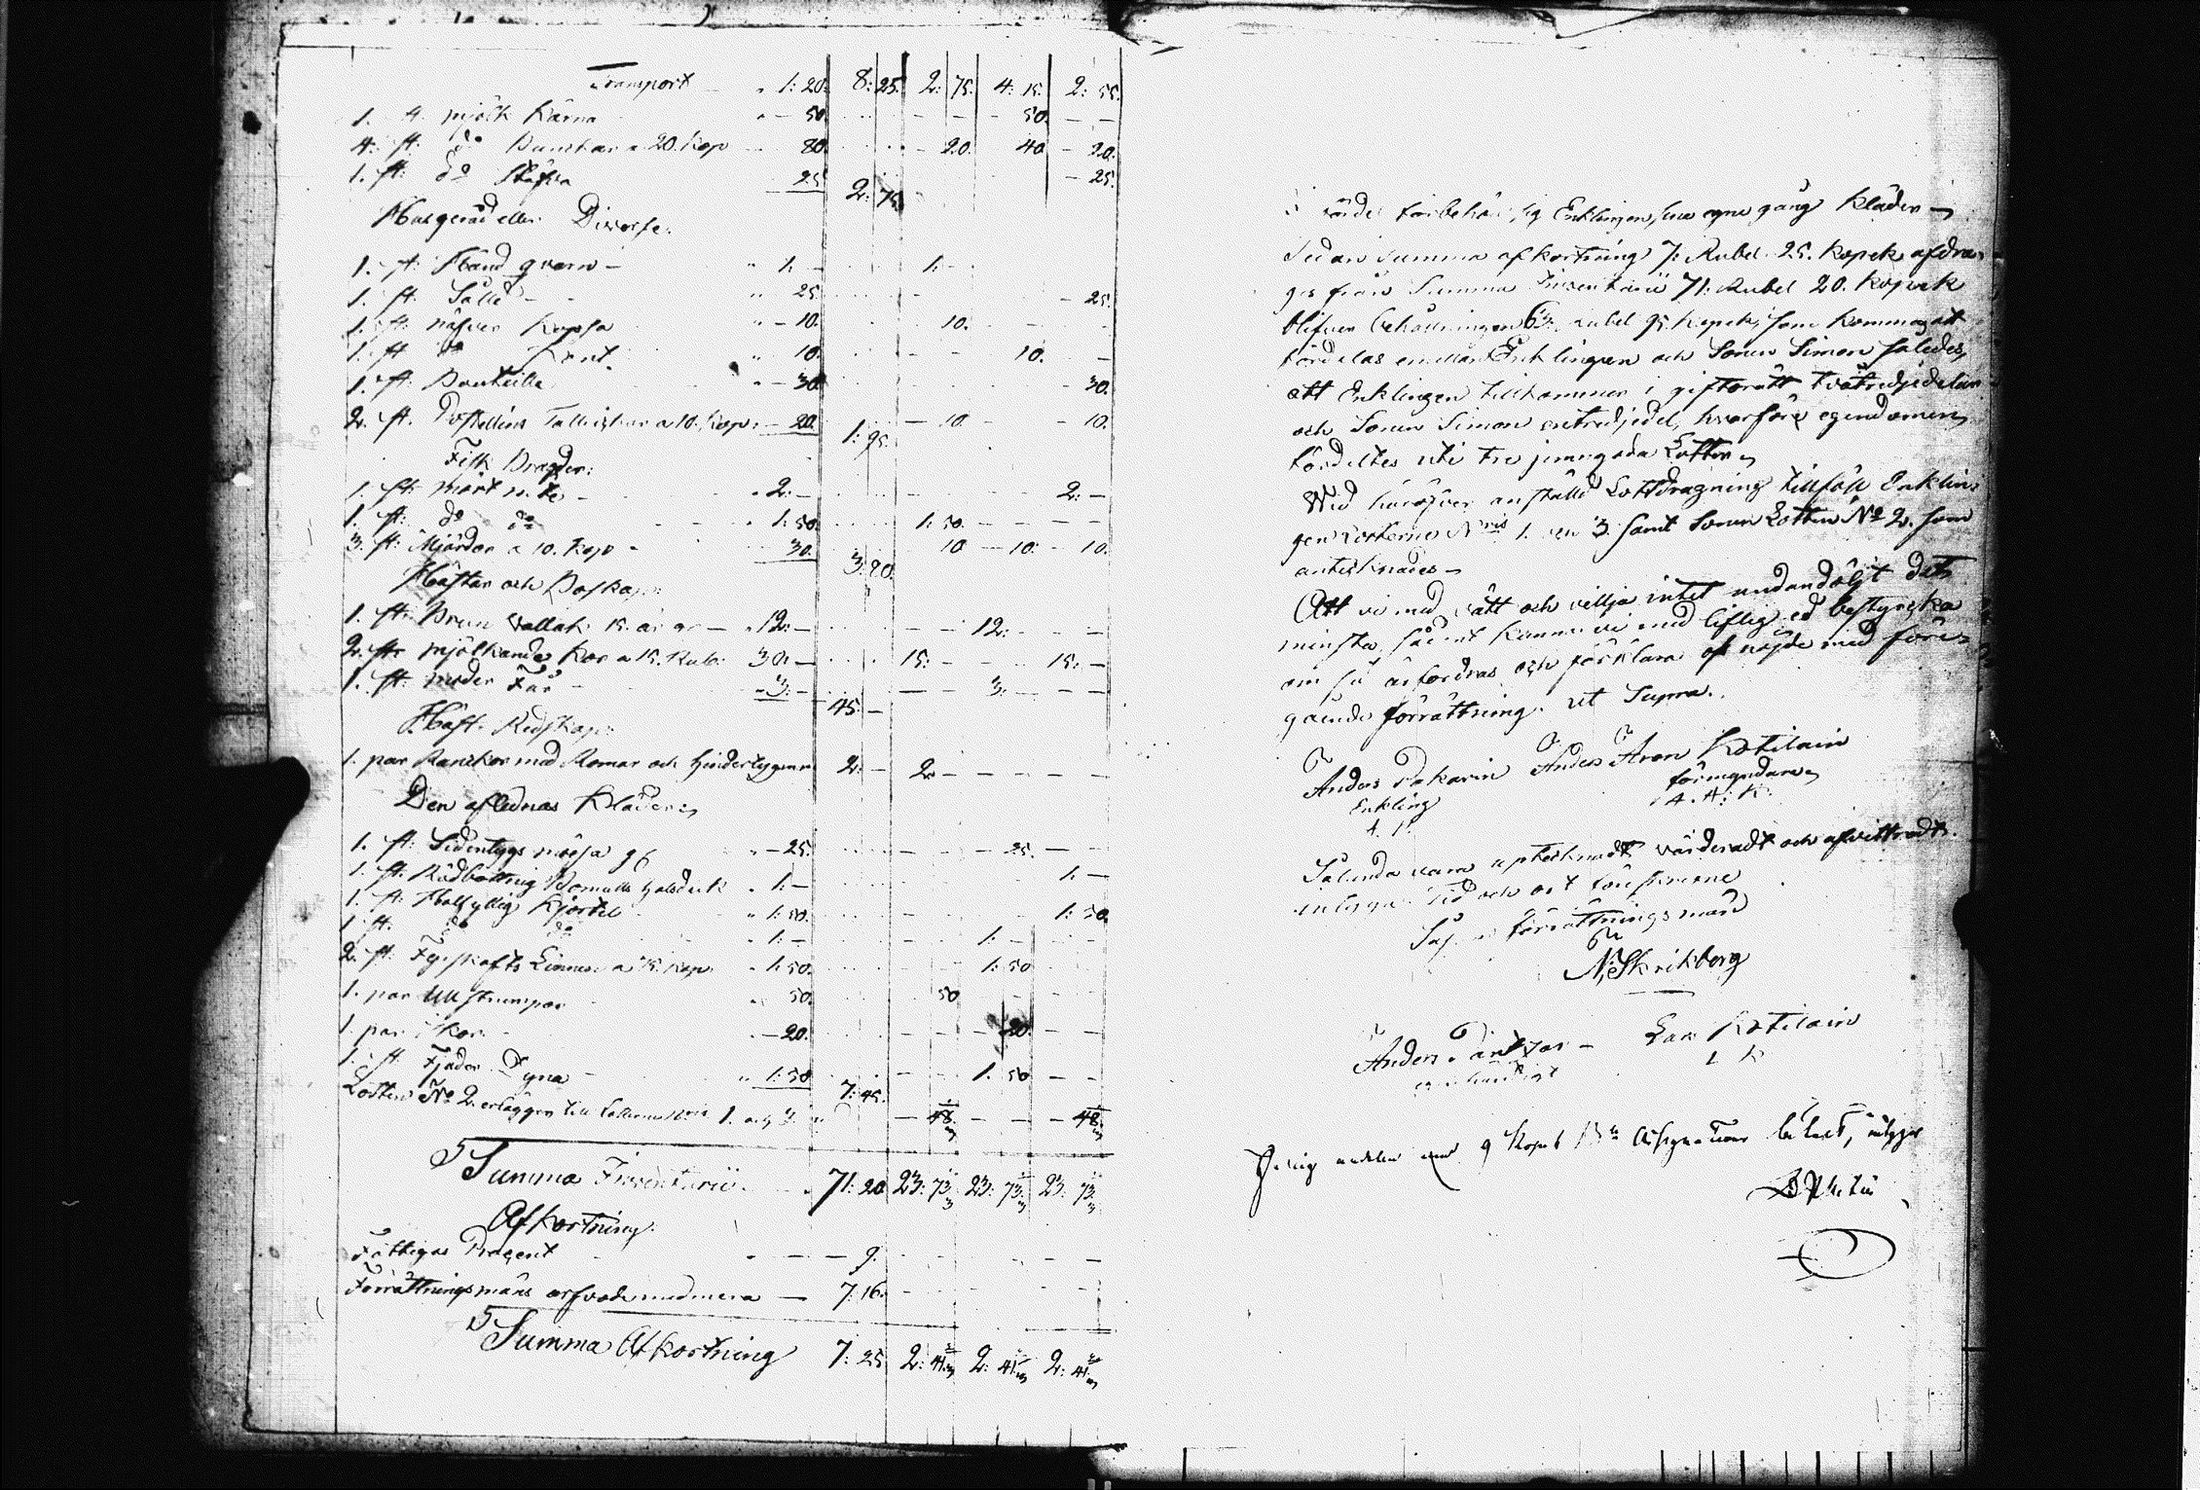 Transport - 1: 20. 8: 25. 2: 75. 4: 15. 2: 55.
1. st. mjölk Kärna - 50. 50.
4. st. do Bunckar a 20. Kop 80. 20. 40 20.
1. st. do Stäfva 25. 2: 75. 25.
Husgeråd eller Diverse.
1. st. Hand qvarn - 1: - 1: -
1. st. Såll - 25. 25.
1. st. näfver Kappa - 10. 10.
1. st. do Kont. 10. 10.
1. st. Bouteille - 30. 30.
2. st. Postellins Talrickar a 10. Kop. - 20. 1: 95. 10. 10.
Fisk Bragder:
1. st. mört not - 2: - 2: -
1. st. do do - 1: 50. 1: 50.
3. st. Mjärdar a 10. Kop - 30. 3: 80. 10 10. 10.
Hästar och Boskap:
1. st. Brun Vallak 15. år gr - 12: - 12: -
2. st. mjölkande Kor a 15. Rub. 30. - 15: - 15: -
1. st. moder Får - 3: - 45. - 3: -
Häst Redskap:
1. par Ranckor med Romar och Hindertygen 2: - 2 -
Den aflednas Kläder:
1. st. Sidentygs mössa - 25. 25.
1. st. Rödbottnig Bomulls Halsduk 1: - 1: -
1. st. Halfyllig Kjortel 1: 50. 1: 50.
1. st. do do 1: - 1: -
2. st. Fyrskafts Linnen a 75. Kop. 1: 50. 1: 50
1. par Ull strumpor 50. 50
1 par Skor. - 20. 20.
1. st. Fjäder Dyna - 1: 50 7: 45. 1: 50
Lotten No 2. erlägger till Lotterne Nris 1. och 3. 48 48
Summa Inventarii. 71: 20. 23: 73 23: 73 23: 73
Afkortning.
Fattigas Procent - 9.
Förrättningsmäns arfvode med mera - 7: 16.
Summa Afkortning 7: 25. 2: 41 2: 41 2: 41
förbehåller sig Enklingen, sina egna gång Kläder -
Sedan Summa afkortning 7: Rubel 25. Kopek afdra-
ges från Summa Inventarii 71: Rubel 20. Kopek
blifver behållningen 63: Rubel 95. Kopek, som kommer att
fördelas emellan Enklingen och Sonen Simon således,
att Enklingen tillkommer i giftorätt två tredjedelar
och Sonen Simon en tredjedel, hvarföre egendomen
fördeltes uti tre jemngoda Lotter
Wid häröfver anställd Lottdragning tillföll Enklin-
gen Lotterne Nris 1. och 3. samt Sonen Lotten No 2. som
antecknades -
Att vi med rätt och vilja intet undandöljt det
minsta, sådant kunna vi med liflig ed bestyrcka
om så ärfordras och förklara oss nöjde med före-
gående förrättning. ut Supra.
Anders Pakarin Anders Aron Kotilain
Enkling förmyndare
A. P. A. A. K.
Sålunda vara uptecknadt värderadt och afvittradt.
intyga. Tid och ort förskrifne
förrättningsmän
N. Skrikberg
Anders Lars Kotilain
L K
9 Kopek